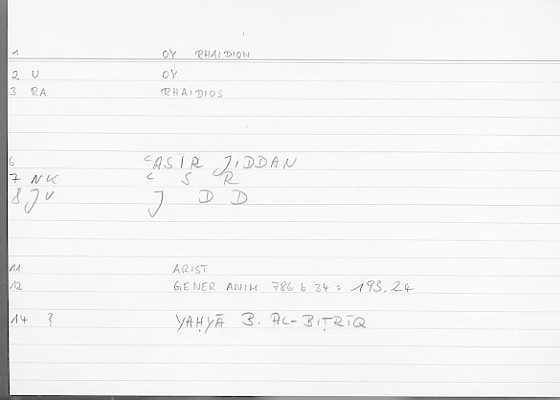 1 OY RHAIDION
2 V OY
3 RA RHAIDIOS
6 ʿASIR JIDDAN
7 NK ʿ S R
8 JV J D D
11 ARIST
12 GENER ANIM 786 b 34 = 193.24
14 ? YAḤYĀ B. AL-BIṬRĪQ